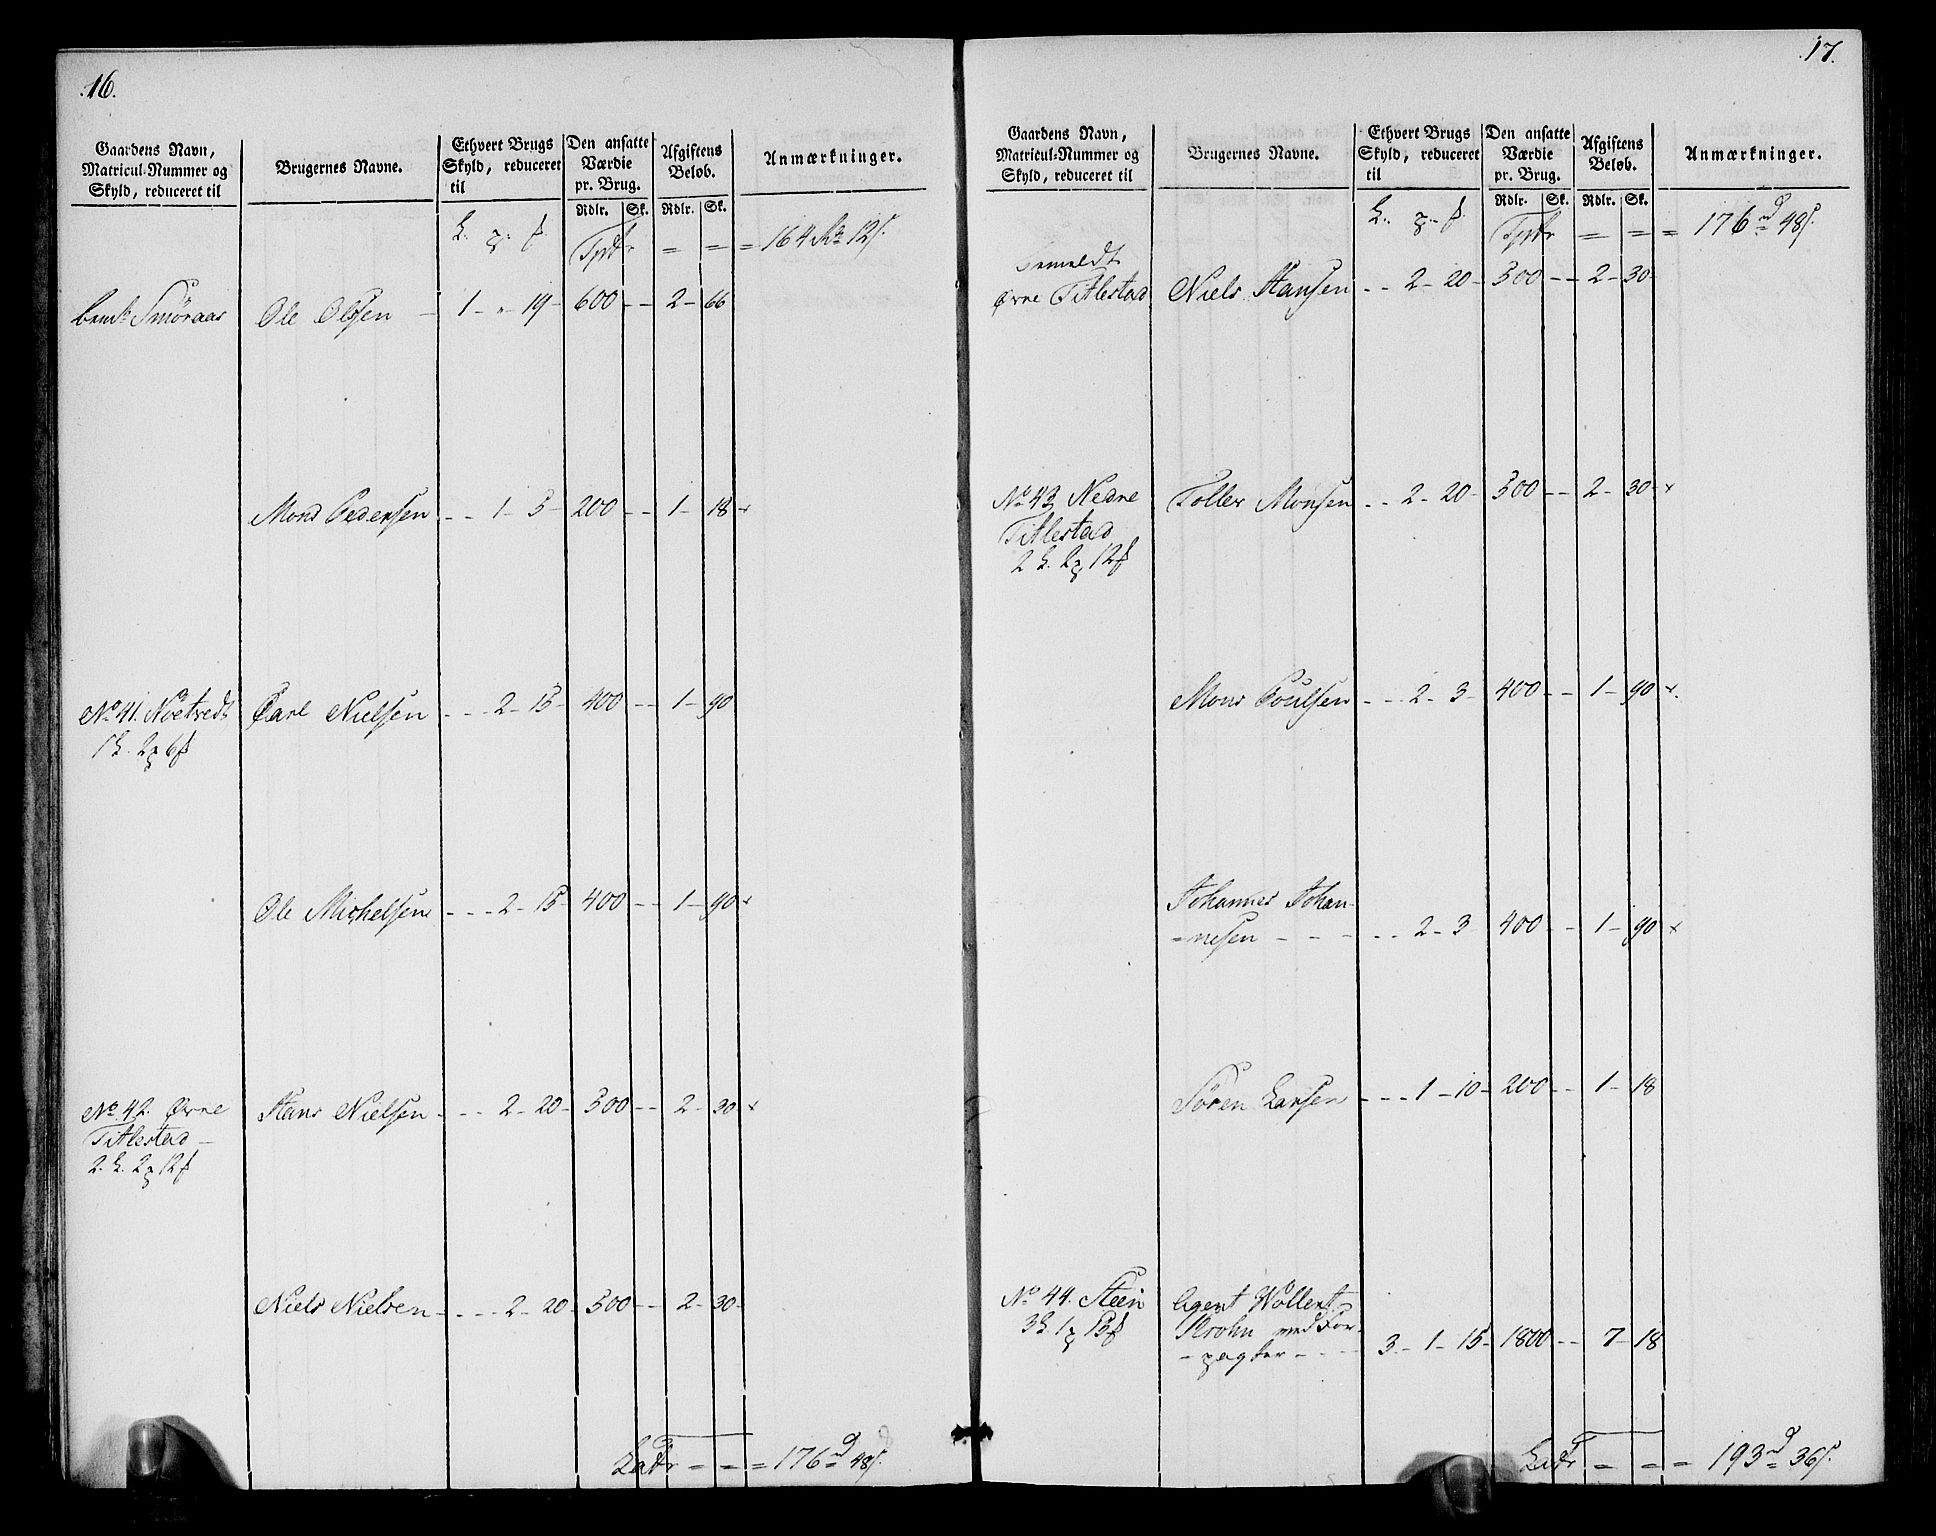 .16.
Gaardens Navn, Matricul-Nummer og Skyld, reduceret til
Brugernes Navne.
Ethvert Brugs Skyld, reduceret til
Den ansatte Værdie pr. Brug.
Afgiftens Beløb.
Anmærkninger.
Rdlr. Sk. Rdlr. Sk.
Tpt = = = 164 12
Smøraas Ole Olsen - 1 - " - 19 - 600 - - 2 - 66
Mons Pedersen - - 1 - 5 - 200 - - 1 - 18 x
No. 41. Nøetvedt Carl Nielsen - - - 2 - 15 - 400 - - 1 - 90
1 2 6
Ole Michelsen - - - 2 - 15 - 400 - - 1 - 90 x
No. 42. Øvre Hans Nielsen - - - 2 - 20 - 500 - - 2 - 30 x
Titlestad -
2. 2 12
Niels Nielsen - - - - 2 - 20 - 500 - - 2 - 30 -
Latr = = = 176 48
.17.
Gaardens Navn, Matricul-Nummer og Skyld, reduceret til
Brugernes Navne.
Ethvert Brugs Skyld, reduceret til
Den ansatte Værdie pr. Brug.
Afgiftens Beløb.
Anmærkninger.
Rdlr. Sk. Rdlr. Sk.
= = = 176 48
Øvre Titlestad Niels Hansen - - 2 - 20 - 500 - - 2 - 30
No. 43 Nedre Toller Monsen - - 2 - 20 - 500 - - 2 - 30 x
Titlestad
2 2 12
Mons Poulsen - - - 2 - 3 - 400 - - 1 - 90 x.
Johannes Johan-
=nesen - - - - - 2 - 3 400 - - 1 - 90 x
Søren Larsen - - - 1 - 10 - 200 - - 1 - 18
No. 44. Steen Agent Wollert
3 1 15 Krohn med For-
-pagter - - - 3 - 1 - 15 - 1800 - - 7 - 18
Latr = = = 193 36